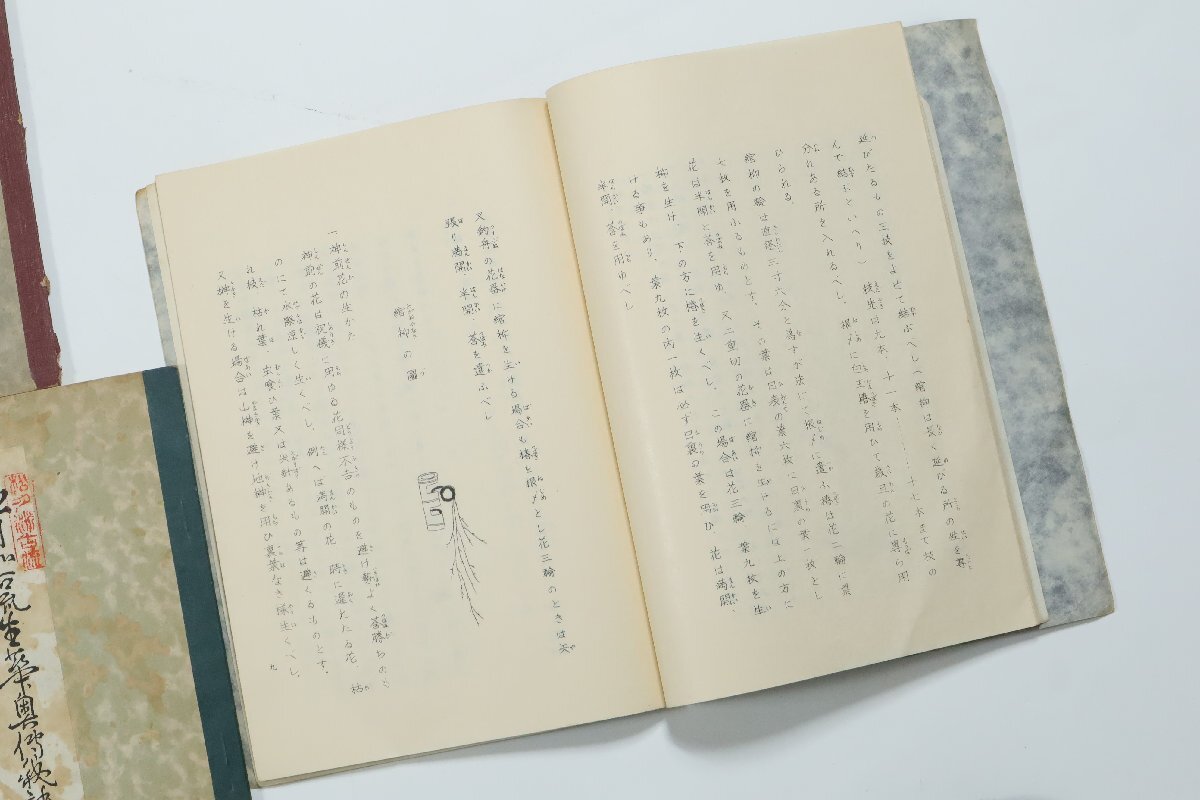 延びたるもの三枝をよせて結ぶべし(綰柳は長く延びる所の枝を尋
んで結ぶといへり) 枝先は九本、十一本………十七本まで枝の
分れある所を入れるべし、根〆に白玉椿を用ひて歳旦の花に専ら用
ひられる。
綰柳の輪は直径三寸六分と為すが法にて根〆に遣ふ椿は花二輪に葉
七枚を用ふるものとす。その葉は日表の葉六枚に日裏の葉一枚とし
花は半開と蕾を用ゆ、又二重切の花器に綰柳を生けるには上の方に
柳を生け、下の方に椿を生くべし。この場合は花三輪 葉九枚を生
ける事もあり、葉九枚の内一枚は必ず日裏の葉を用ひ、花は満開、
半開、蕾を用ゆべし
又釣舟の花器に綰柳を生ける場合も椿を根〆とし花三輪のときは矢
張り満開、半開、蕾を遣ふべし
綰柳の図
一神前花の生かた
神前の花は祝儀に用ゆる花同様不吉のものを避け新よく蕾勝ちのも
のにて水際涼しく生くべし、例へば満開の花、時に遅たる花、枯
れ枝、枯れ葉、虫喰ひ葉又は
あるもの等は避くるものとす。
又榊を生ける場合は山榊を避け地榊を用ひ裏葉なき様生くべし。
九
古流生華奥傳秘